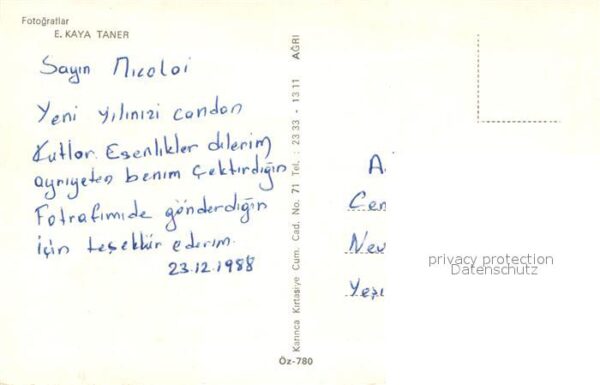 Fotoğraflar
E. KAYA TANER
Sayın Nicoloi
Yeni yılınızı candan
Kutlar. Esenlikler dilerim
ayrıyeten benim Çektirdiğin
Fotrafımıde gönderdiğin
için teşekkür ederim.
23.12.1988
Karınca Kırtasiye Cum. Cad. No. 71 Tel. : 23 33 - 13 11 AĞRI
Öz-780
Cen
Nev
privacy protection
Datenschutz